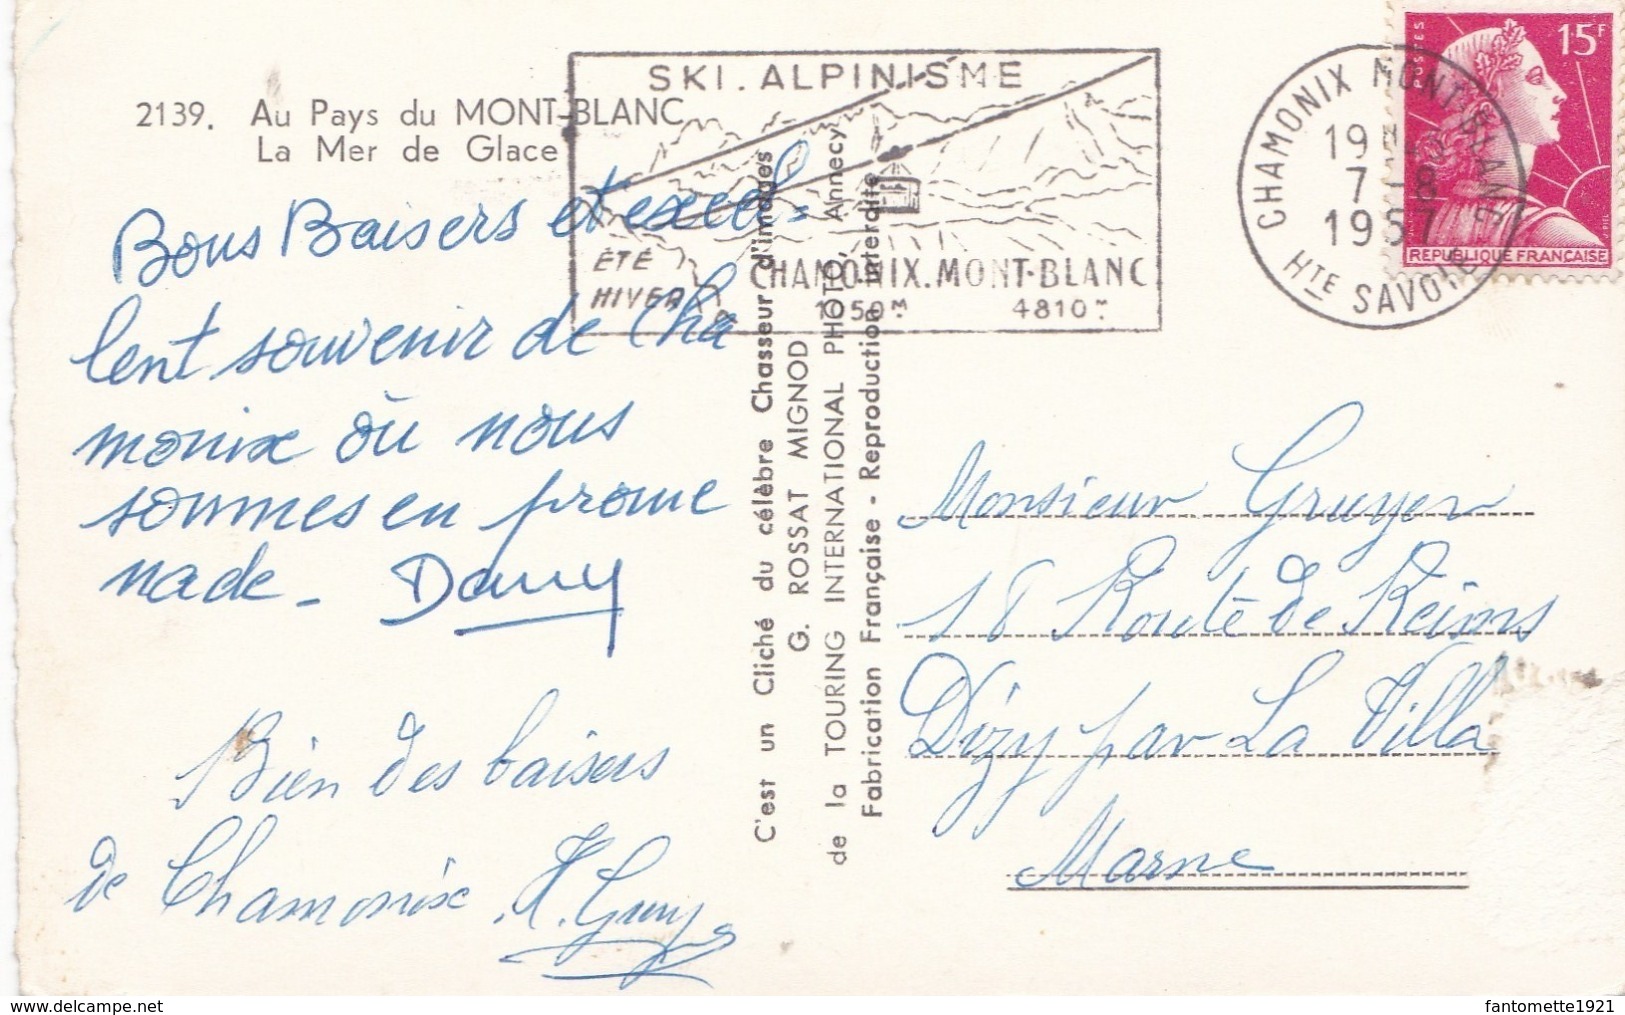 2139. Au Pays du MONT-BLANC
La Mer de Glace
Bons Baisers et excel=
lent souvenir de Cha
monix où nous
sommes en prome
nade - Dany
Bien des baisers
de Chamonix
SKI. ALPINISME
ÉTÉ
HIVER
CHAMONIX. MONT-BLANC
1050 M. 4810 M.
CHAMONIX MONT-BLANC
19 H 45
7 - 8
1957
HTE SAVOIE
POSTES
15F
REPUBLIQUE FRANÇAISE
C'est un Cliché du célèbre Chasseur d'images
G. ROSSAT MIGNOD
de la TOURING INTERNATIONAL PHOTO, Annecy
Fabrication Française - Reproduction interdite
Monsieur Gruyer
18 Route de Reims
Dizy par La Villa
Marne
www.delcampe.net
fantomette1921